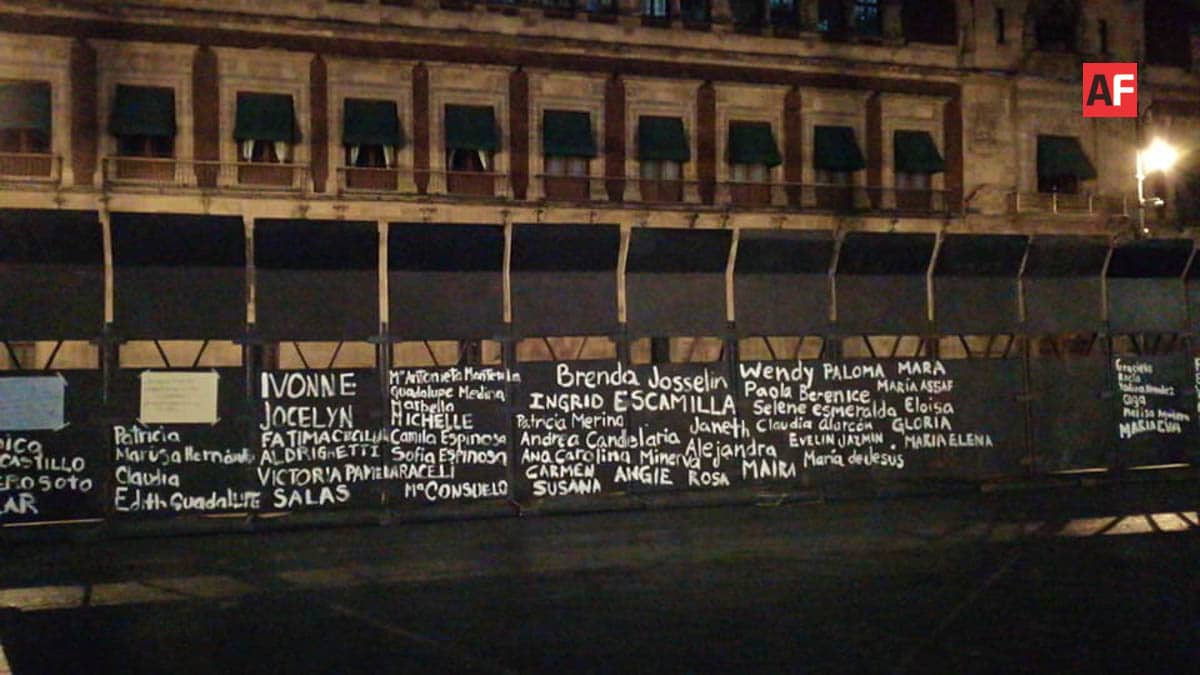 AF
CASTILLO
SOTO
Patricia
Marusa Hernández
Claudia
Edith Guadalupe
IVONNE
JOCELYN
FATIMA CECILIA
ALDRIGHETTI
VICTORIA PAMELA
SALAS
Mª Antonieta
Guadalupe Medina
Marbella
MICHELLE
Camila Espinosa
Sofia Espinosa
ARACELI
Mª CONSUELO
Brenda Josselin
INGRID ESCAMILLA
Patricia Merino
Andrea Candelaria
Ana Carolina Minerva
CARMEN ANGIE ROSA
SUSANA
Janeth
Alejandra
MAIRA
Wendy PALOMA MARA
Paola Berenice MARIA ASSAF
Selene esmeralda Eloisa
Claudia Alarcón GLORIA
EVELIN JAZMIN • MARIA ELENA
Maria de Jesus
Graciela